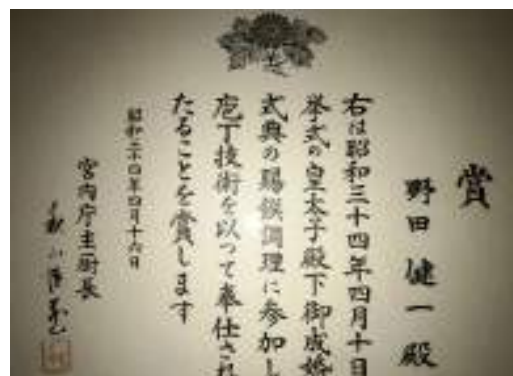 賞
野田健一殿
右は昭和三十四年四月十日
挙式の皇太子殿下御成婚
式典の賜饌調理に参加し
庖丁技術を以つて奉仕され
たることを賞します
昭和三十四年四月十六日
宮内庁主厨長
秋山